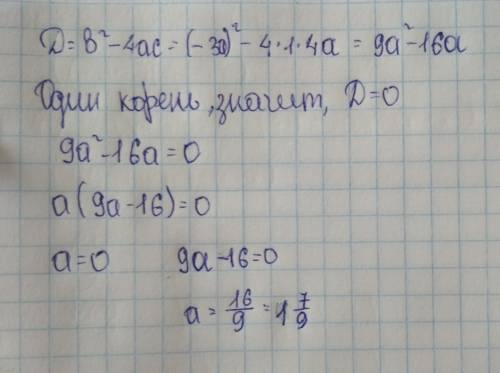 D = b² - 4ac = (-3a)² - 4·1·4a = 9a² - 16a
Один корень, значит, D=0
9a² - 16a = 0
a(9a - 16) = 0
a = 0 9a - 16 = 0
a = 16/9 = 1 7/9